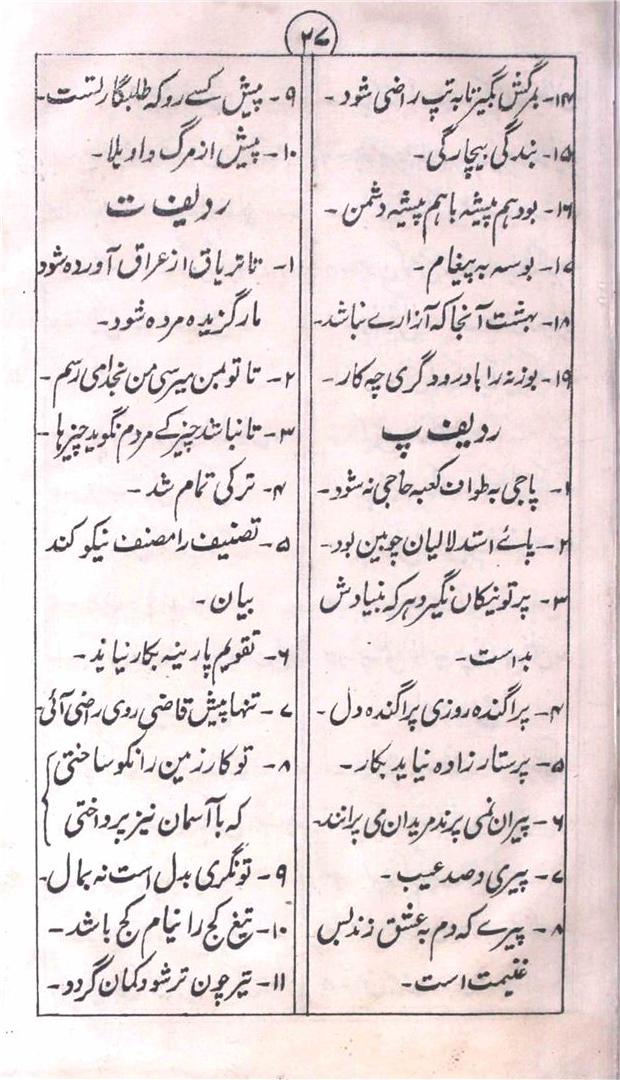 ۲۷
۱۴- بمرگش بگیر تا به تپ راضی شود -
۱۵- بندگی بیچارگی -
۱۶- بود ہم پیشہ با ہم پیشہ دشمن -
۱۷- بوسہ بہ پیغام -
۱۸- بہشت آنجا کہ آزارے نباشد -
۱۹- بوزنہ را با درودگری چہ کار -
ردیف پ
۱- پاجی بہ طواف کعبہ حاجی نہ شود -
۲- پائے استدلالیان چوبین بود -
۳- پرتو نیکان نگیرد ہر کہ بنیادش
بداست -
۴- پراگندہ روزی پراگندہ دل -
۵- پرستار زادہ نیاید بکار -
۶- پیران نمی پرند مریدان می پرانند -
۷- پیری و صد عیب -
۸- پیرے کہ دم بہ عشق زند بس
غنیمت است -
۹- پیش کسے رو کہ طلبگار تست -
۱۰- پیش از مرگ واویلا -
ردیف ت
۱- تا تریاق از عراق آوردہ شود
مار گزیدہ مردہ شود -
۲- تا تو بمن میرسی من بخدای رسم -
۳- تا نباشد چیزکے مردم نگوید چیزہا -
۴- ترکی تمام شد -
۵- تصنیف را مصنف نیکو کند
بیان -
۶- تقویم پارینہ بکار نیاید -
۷- تنہا پیش قاضی روی راضی آئی -
۸- تو کار زمین را نکو ساختی
کہ با آسمان نیز پرداختی
۹- تونگری بدل است نہ بمال -
۱۰- تیغ کج را نیام کج باشد -
۱۱- تیر چون تر شود کمان گردد -